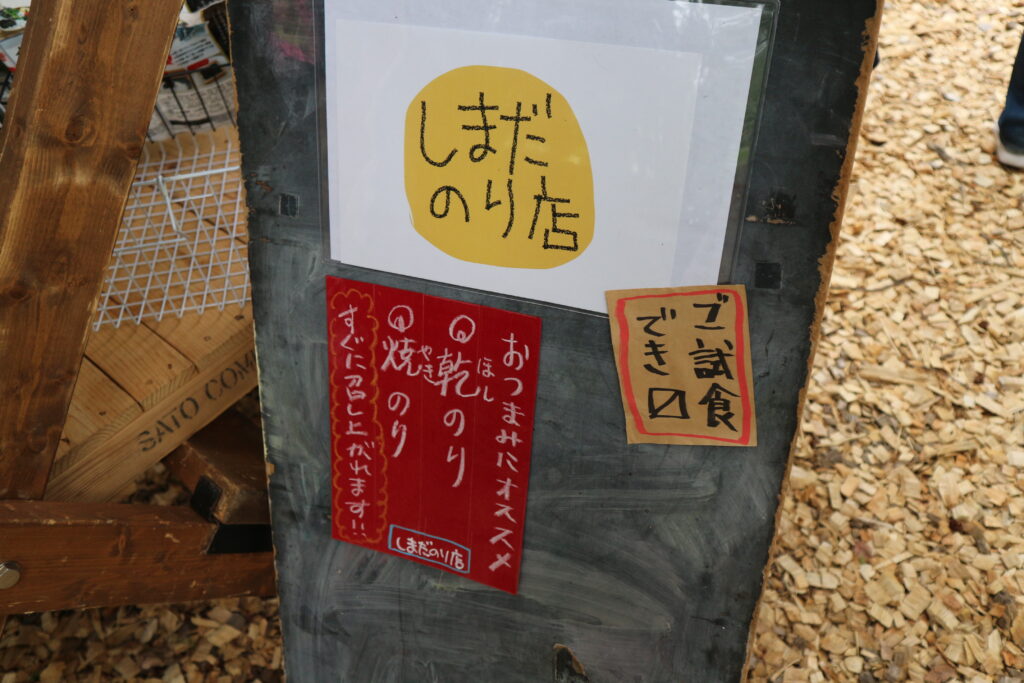 しまだ
のり店
おつまみにオススメ
乾のり
ほし
焼のり
やき
すぐに召し上がれます!!
しまだのり店
ご試食
でき〼
SATO COM